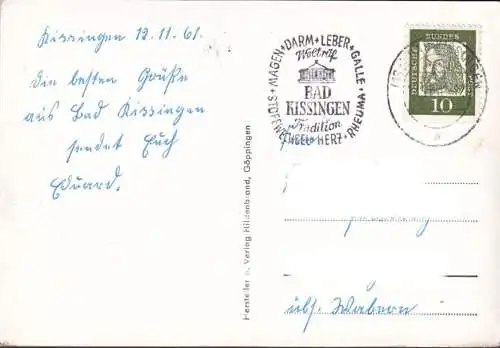 Kissingen 12.11.61.
Die besten Grüße
aus Bad Kissingen
sendet Euch
Eduard.
STOFFWECHSEL • MAGEN • DARM • LEBER • GALLE • RHEUMA • HERZ
Weltruf
BAD
KISSINGEN
Tradition
DEUTSCHE BUNDESPOST
10
Hersteller u. Verlag Hildenbrand, Göppingen
übf. Wabern